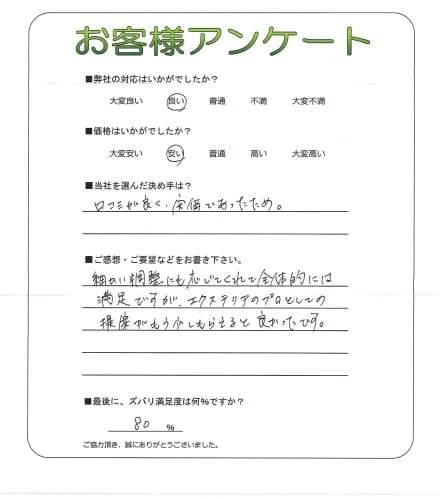 お客様アンケート
■弊社の対応はいかがでしたか?
大変良い 良い 普通 不満 大変不満
■価格はいかがでしたか?
大変安い 安い 普通 高い 大変高い
■当社を選んだ決め手は?
口コミが良く、安価であったため。
■ご感想・ご要望などをお書き下さい。
細かい調整にも応じてくれて全体的には
満足ですが、エクステリアのプロとしての
提案がもう少しもらえると良かったです。
■最後に、ズバリ満足度は何%ですか?
80 %
ご協力頂き、誠にありがとうございました。